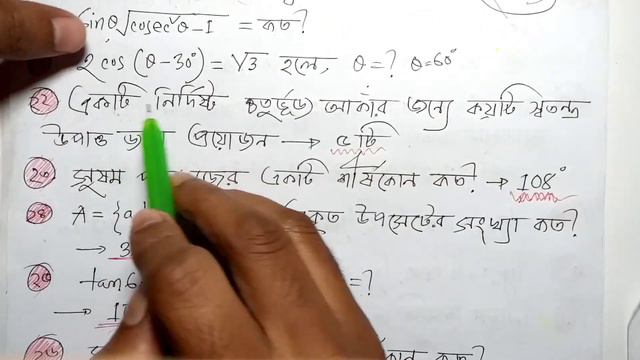 sinθ √cosec²θ-1 = কত?
2 cos (θ-30°) = √3 হলে, θ=? θ=60°
২২ একটি নির্দিষ্ট চতুর্ভূজ আকার জন্যে কয়টি স্বতন্ত্র
উপাত্ত প্রয়োজন → ৫টি
২৩ সুষম একটি শীর্ষকোন কত. → 108°
২৪ A = {a উপসেটের সংখ্যা কত?
→ 3
২৫ tan =?
→ 1
২৬